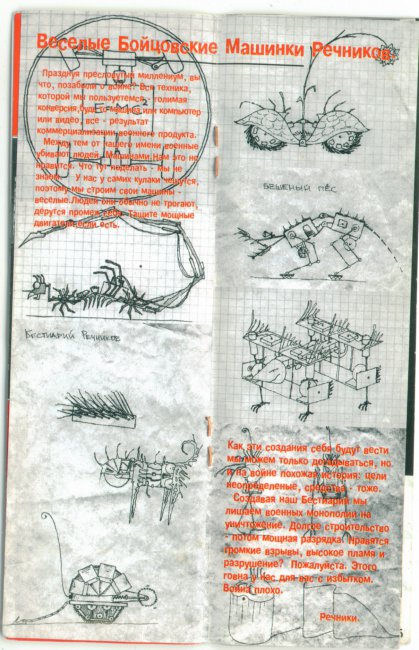 Веселые Бойцовские Машинки Речников
Празднуя пресловутый миллениум, вы
что, позабыли о войне? Вся техника,
которой мы пользуемся - голимая
конверсия, будь то машина или компьютер
или видео, все - результат
коммерциализации военного продукта.
Между тем от нашего имени военные
убивают людей. Машинами. Нам это не
нравится. Что тут поделать - мы не
знаем. У нас у самих кулаки чешутся,
поэтому мы строим свои машины -
веселые. Людей они обычно не трогают,
дерутся промеж себя. Тащите мощные
двигатели, если есть.
БЕСТИАРИЙ РЕЧНИКОВ
БЕШЕНЫЙ ПЁС
Как эти создания себя будут вести
мы можем только догадываться, но
и на войне похожая история: цели
неопределеные, средства - тоже.
Создавая наш Бестиарий мы
лишаем военных монополии на
уничтожение. Долгое строительство
- потом мощная разрядка. Нравятся
громкие взрывы, высокое пламя и
разрушение? Пожалуйста. Этого
говна у нас для вас с избытком.
Война плохо.
Речники.